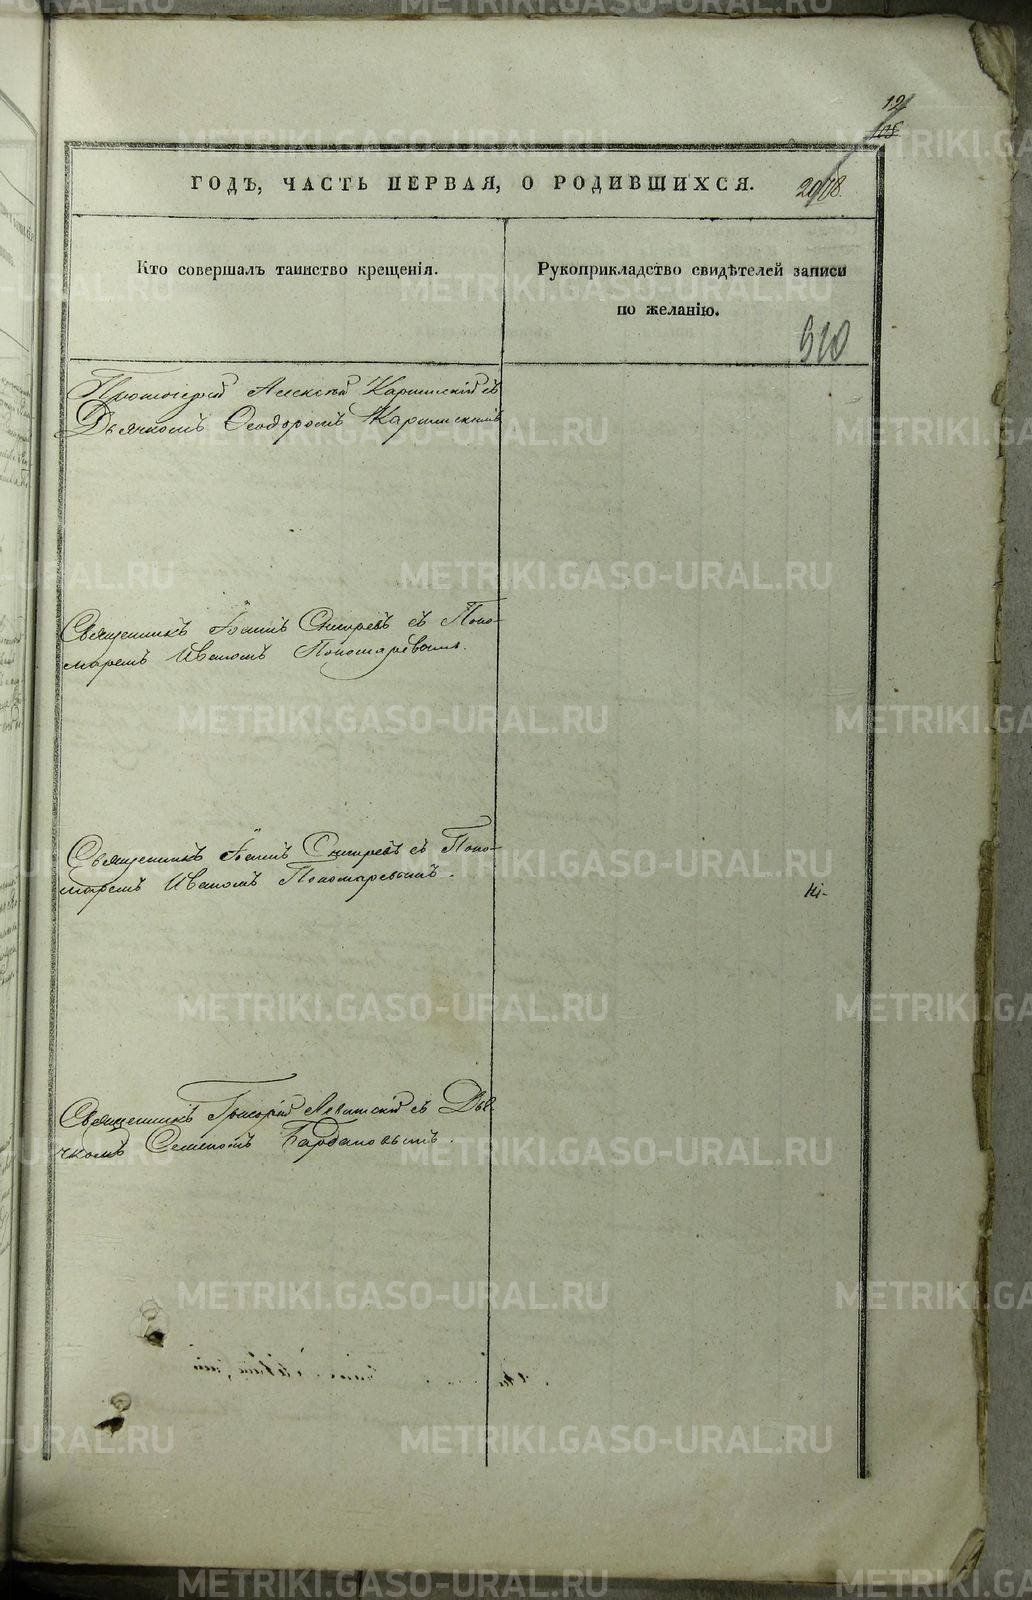 12
ГОДЪ, ЧАСТЬ ПЕРВАЯ, О РОДИВШИХСЯ.
Кто совершалъ таинство крещенія.
Рукоприкладство свидѣтелей записи
по желанію.
910
Протоіерей Алексѣй Карпинскій съ
Дьячкомъ Ѳеодоромъ Карпинскимъ
Священникъ Іоаннъ Снигревъ съ Поно-
маремъ Иваномъ Пономаревымъ.
Священникъ Іоаннъ Снигревъ съ Поно-
маремъ Иваномъ Пономаревымъ.
Ni-
Священникъ Григорій Левитскій съ Дья
чкомъ Семеномъ
METRIKI.GASO-URAL.RU